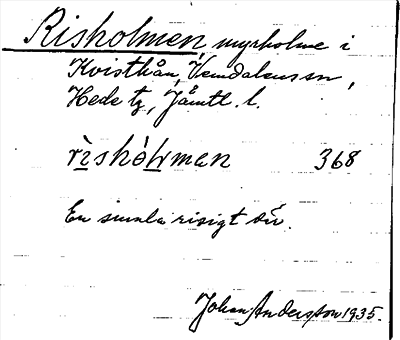 Risholmen, myrholme i
Kvisthån, Vemdalens sn,
Hede tg, Jämtl. l.
rìshòlmen 368
En samla risigt där.
Johan Andersson 1935.